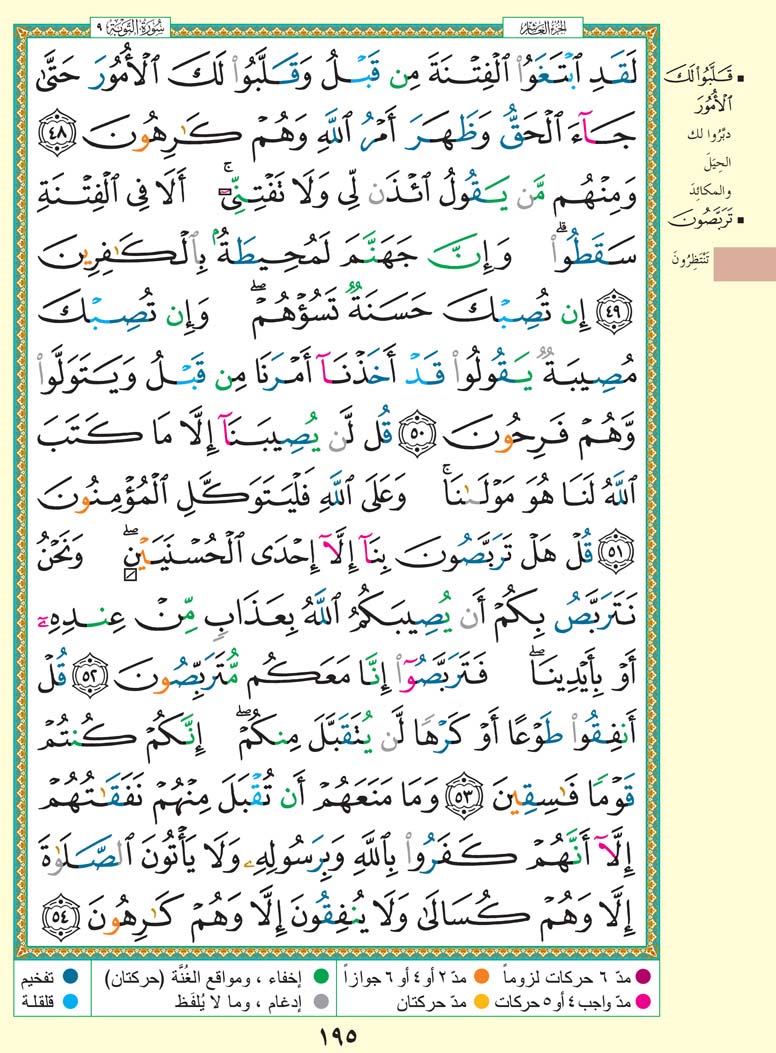 الجزء العاشر
سورة التوبة ٩
لَقَدِ ٱبْتَغَوُا۟ ٱلْفِتْنَةَ مِن قَبْلُ وَقَلَّبُوا۟ لَكَ ٱلْأُمُورَ حَتَّىٰ
جَآءَ ٱلْحَقُّ وَظَهَرَ أَمْرُ ٱللَّهِ وَهُمْ كَـٰرِهُونَ ٤٨
وَمِنْهُم مَّن يَقُولُ ٱئْذَن لِّى وَلَا تَفْتِنِّىٓ ۚ أَلَا فِى ٱلْفِتْنَةِ
سَقَطُوا۟ ۗ وَإِنَّ جَهَنَّمَ لَمُحِيطَةٌۢ بِٱلْكَـٰفِرِينَ
٤٩ إِن تُصِبْكَ حَسَنَةٌ تَسُؤْهُمْ ۖ وَإِن تُصِبْكَ
مُصِيبَةٌ يَقُولُوا۟ قَدْ أَخَذْنَآ أَمْرَنَا مِن قَبْلُ وَيَتَوَلَّوا۟
وَّهُمْ فَرِحُونَ ٥٠ قُل لَّن يُصِيبَنَآ إِلَّا مَا كَتَبَ
ٱللَّهُ لَنَا هُوَ مَوْلَىٰنَا ۚ وَعَلَى ٱللَّهِ فَلْيَتَوَكَّلِ ٱلْمُؤْمِنُونَ
٥١ قُلْ هَلْ تَرَبَّصُونَ بِنَآ إِلَّآ إِحْدَى ٱلْحُسْنَيَيْنِ ۖ وَنَحْنُ
نَتَرَبَّصُ بِكُمْ أَن يُصِيبَكُمُ ٱللَّهُ بِعَذَابٍ مِّنْ عِندِهِۦٓ
أَوْ بِأَيْدِينَا ۖ فَتَرَبَّصُوٓا۟ إِنَّا مَعَكُم مُّتَرَبِّصُونَ ٥٢ قُلْ
أَنفِقُوا۟ طَوْعًا أَوْ كَرْهًا لَّن يُتَقَبَّلَ مِنكُمْ ۖ إِنَّكُمْ كُنتُمْ
قَوْمًا فَـٰسِقِينَ ٥٣ وَمَا مَنَعَهُمْ أَن تُقْبَلَ مِنْهُمْ نَفَقَـٰتُهُمْ
إِلَّآ أَنَّهُمْ كَفَرُوا۟ بِٱللَّهِ وَبِرَسُولِهِۦ وَلَا يَأْتُونَ ٱلصَّلَوٰةَ
إِلَّا وَهُمْ كُسَالَىٰ وَلَا يُنفِقُونَ إِلَّا وَهُمْ كَـٰرِهُونَ ٥٤
▪ قَلَّبُوا۟ لَكَ
ٱلْأُمُورَ
دبَّرُوا لك
الحِيَلَ
والمكائِدَ
▪ تَرَبَّصُونَ
تَنْتَظِرُونَ
مدّ ٦ حركات لزوماً
مدّ ٢ أو ٤ أو ٦ جوازاً
إخفاء ، ومواقع الغُنَّة (حركتان)
تفخيم
مدّ واجب ٤ أو ٥ حركات
مدّ حركتان
إدغام ، وما لا يُلفَظ
قلقلة
١٩٥